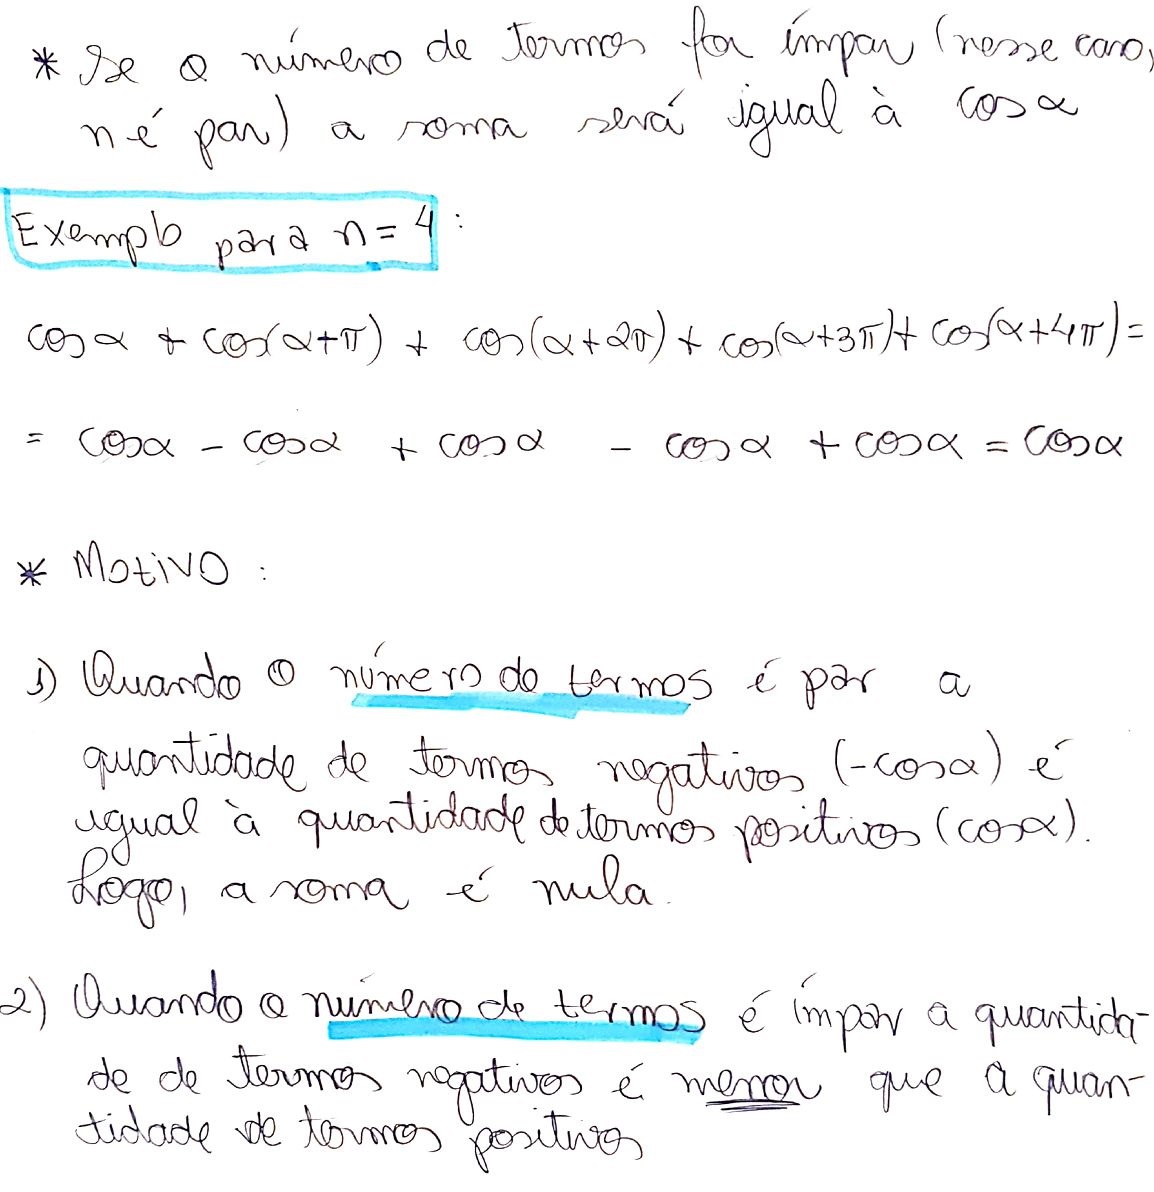 * Se o número de termos for ímpar (nesse caso,
n é par) a soma será igual à cos α
Exemplo para n = 4 :
cos α + cos(α+π) + cos(α+2π) + cos(α+3π) + cos(α+4π) =
= cos α - cos α + cos α - cos α + cos α = cos α
* Motivo :
1) Quando o número de termos é par a
quantidade de termos negativos (-cos α) é
igual à quantidade de termos positivos (cos α).
Logo, a soma é nula.
2) Quando o número de termos é ímpar a quantida-
de de termos negativos é menor que a quan-
tidade de termos positivos